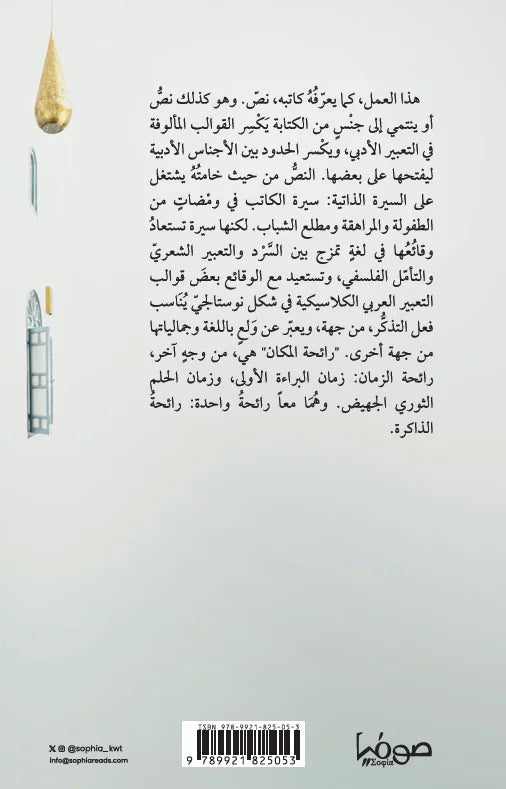 هذا العمل، كما يعرّفُهُ كاتبه، نصّ. وهو كذلك نصٌّ
أو ينتمي إلى جنْسٍ من الكتابة يَكْسِر القوالب المألوفة
في التعبير الأدبي، ويكْسر الحدود بين الأجناس الأدبية
ليفتحها على بعضها. النصُّ من حيث خامتُهُ يشتغل
على السيرة الذاتية: سيرة الكاتب في ومْضاتٍ من
الطفولة والمراهقة ومطلع الشباب. لكنها سيرة تستعادُ
وقائعُها في لغةٍ تمزج بين السَّرْد والتعبير الشعريّ
والتأمّل الفلسفي، وتستعيد مع الوقائع بعضَ قوالب
التعبير العربي الكلاسيكية في شكل نوستالجيّ يُنَاسب
فعل التذكُّر، من جهة، ويعبّر عن وَلعٍ باللغة وجمالياتها
من جهة أخرى. "رائحة المكان" هي، من وجهٍ آخر،
رائحة الزمان: زمان البراءة الأولى، وزمان الحلم
الثوري الجهيض. وهُمَا معاً رائحةُ واحدة: رائحةُ
الذاكرة.
ISBN 978-9921-825-05-3
9 789921 825053
@sophia_kwt
info@sophiareads.com
صوفيا
Σοφία